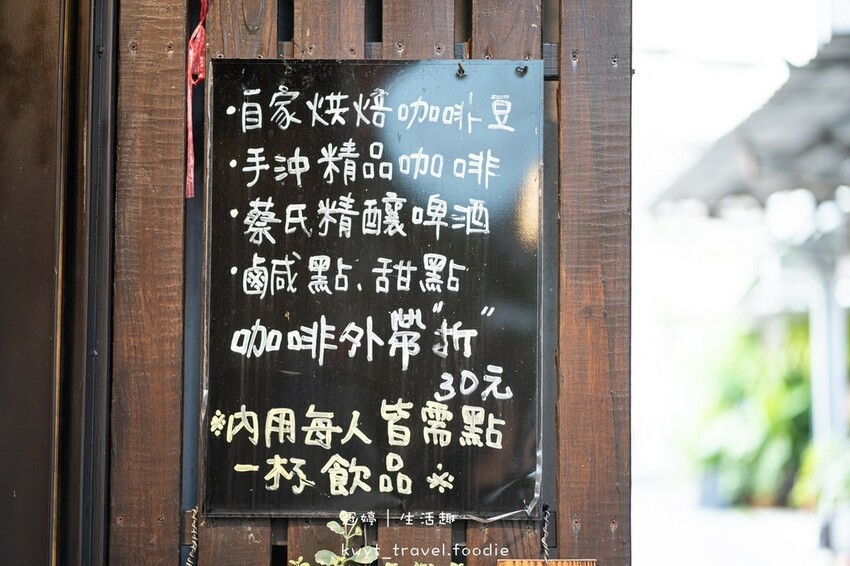 ·自家烘焙咖啡豆
·手沖精品咖啡
·蔡氏精釀啤酒
·鹹點、甜點
咖啡外帶"折"
30元
※內用每人皆需點
一杯飲品※
婷|生活趣
kuyt_travel.foodie